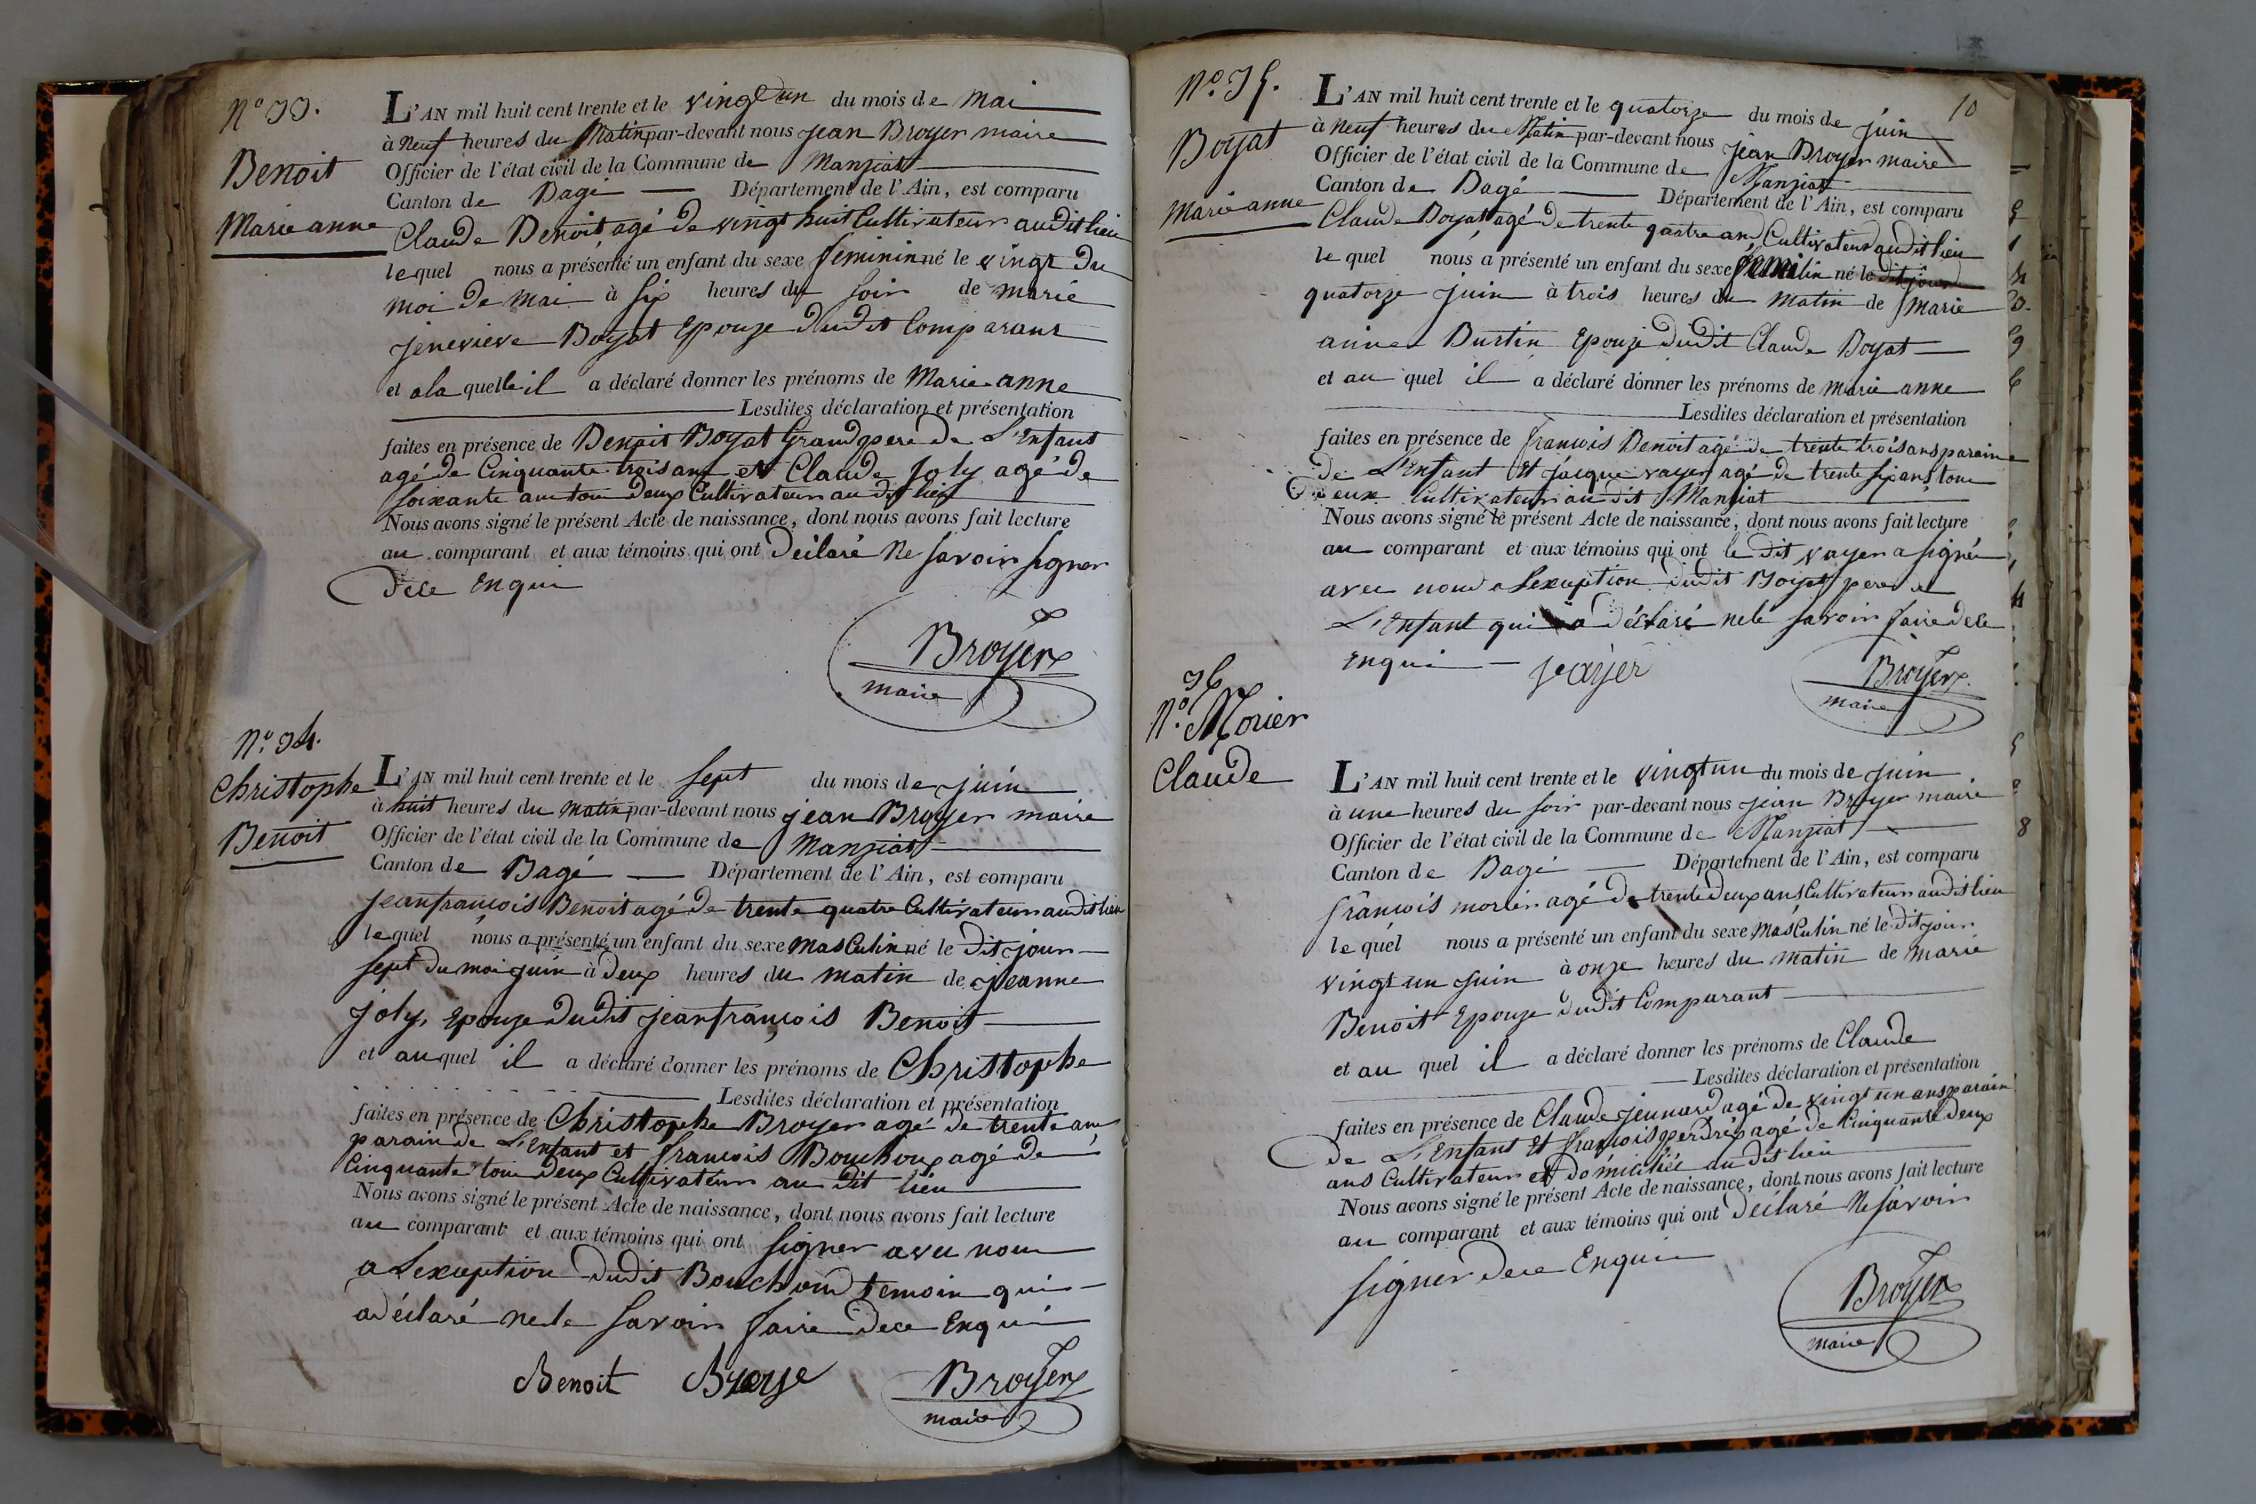 N° 33.
Benoit
Marie anne
L'AN mil huit cent trente et le vingt un du mois de Mai
à neuf heures du Matin par-devant nous jean Broyer maire
Officier de l'état civil de la Commune de Manziat
Canton de Bagé Département de l'Ain, est comparu
Claude Benoit, agé de vingt huit Cultivateur audit lieu
le quel nous a présenté un enfant du sexe feminin né le vingt du
moi de mai à six heures du soir de marie
jenevieve Boyat Epouze dudit Comparant
et a la quelle il a déclaré donner les prénoms de Marie anne
Lesdites déclaration et présentation
faites en présence de Benoit Boyat Grand pere de L'Enfant
agé de Cinquante trois ans et Claude Joly agé de
soixante ans tou deux Cultivateur au dit lieu
Nous avons signé le présent Acte de naissance, dont nous avons fait lecture
au comparant et aux témoins qui ont déclaré Ne savoir signer
dece Enqui
Broyer
maire
N° 34.
Christophe
Benoit
L'AN mil huit cent trente et le sept du mois de juin
à huit heures du matin par-devant nous jean Broyer maire
Officier de l'état civil de la Commune de Manziat
Canton de Bagé Département de l'Ain, est comparu
jeanfrancois Benoit agé de trente quatre Cultivateur audit lieu
le quel nous a présenté un enfant du sexe masculin né le dit jour
sept du moi juin à deux heures du matin de jeanne
joly, Epouze dudit jeanfrancois Benoit
et au quel il a déclaré donner les prénoms de Christophe
Lesdites déclaration et présentation
faites en présence de Christophe Broyer agé de trente ans
parain de L'Enfant et francois Bouchoux agé de
Cinquante tou deux Cultivateur au dit lieu
Nous avons signé le présent Acte de naissance, dont nous avons fait lecture
au comparant et aux témoins qui ont signer avec nous
a Lexception dudit Bouchoud temoin qui
a déclaré nele savoir faire dece Enqui
Benoit Broye Broyer
maire
10
N° 35.
Boyat
Marie anne
L'AN mil huit cent trente et le quatorze du mois de juin
à neuf heures du Matin par-devant nous jean Broyer maire
Officier de l'état civil de la Commune de Manziat
Canton de Bagé Département de l'Ain, est comparu
Claude Boyat agé de trente quatre ans Cultivateur audit lieu
le quel nous a présenté un enfant du sexe né le dit jour
quatorze juin à trois heures du matin de marie
anne Burtin Epouze dudit Claude Boyat
et au quel il a déclaré donner les prénoms de marie anne
Lesdites déclaration et présentation
faites en présence de francois Benoit agé de trente trois ans parain
de L'Enfant et jacque vayer agé de trente six ans tou
deux Cultivateur au dit Manziat
Nous avons signé le présent Acte de naissance, dont nous avons fait lecture
au comparant et aux témoins qui ont le dit vayer a signé
avec nous a Lexception dudit Boyat pere de
L'Enfant qui a déclaré nele savoir faire dece
Enqui vayer Broyer
maire
36
N° Morier
Claude
L'AN mil huit cent trente et le vingt un du mois de juin
à une heures du soir par-devant nous jean Broyer maire
Officier de l'état civil de la Commune de Manziat
Canton de Bagé Département de l'Ain, est comparu
francois morier agé de trente deux ans Cultivateur audit lieu
le quel nous a présenté un enfant du sexe masculin né le dit jour
vingt un juin à onze heures du matin de marie
Benoit Epouze dudit Comparant
et au quel il a déclaré donner les prénoms de Claude
Lesdites déclaration et présentation
faites en présence de Claude jeunard agé de vingt un ans parain
de L'Enfant Et francois perdrix agé de Cinquante deux
ans Cultivateur et domicilié au dit lieu
Nous avons signé le présent Acte de naissance, dont nous avons fait lecture
au comparant et aux témoins qui ont déclaré Ne savoir
signer dece Enqui
Broyer
maire